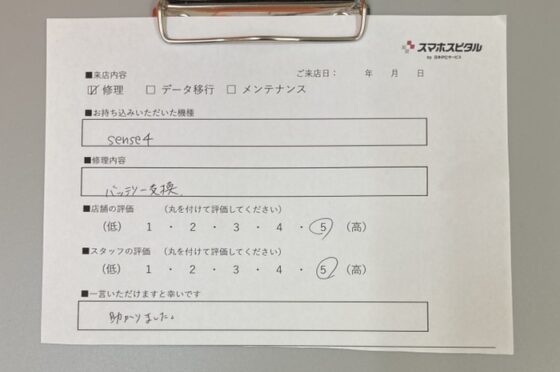 スマホスピタル
by 日本PCサービス
■来店内容
ご来店日： 年 月 日
☑ 修理 □ データ移行 □ メンテナンス
■お持ち込みいただいた機種
sense4
■修理内容
バッテリー交換
■店舗の評価 （丸を付けて評価してください）
（低） 1 ・ 2 ・ 3 ・ 4 ・ 5 （高）
■スタッフの評価 （丸を付けて評価してください）
（低） 1 ・ 2 ・ 3 ・ 4 ・ 5 （高）
■一言いただけますと幸いです
助かりました。